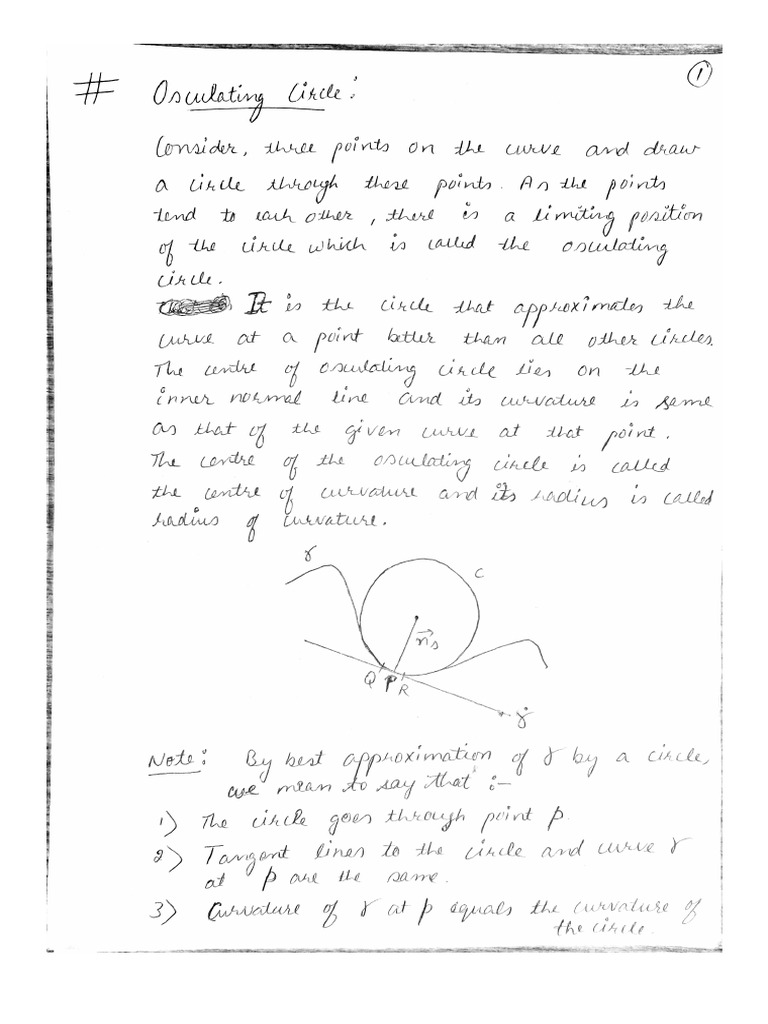 ①
# Osculating Circle:
Consider, three points on the curve and draw
a circle through these points. As the points
tend to each other, there is a limiting position
of the circle which is called the osculating
circle.
It is the circle that approximates the
curve at a point better than all other circles.
The centre of osculating circle lies on the
inner normal line and its curvature is same
as that of the given curve at that point.
The centre of the osculating circle is called
the centre of curvature and its radius is called
radius of curvature.
γ
C
n⃗s
Q P R
γ̇
Note: By best approximation of γ by a circle,
we mean to say that :-
1) The circle goes through point p.
2) Tangent lines to the circle and curve γ
at p are the same.
3) Curvature of γ at p equals the curvature of
the circle.